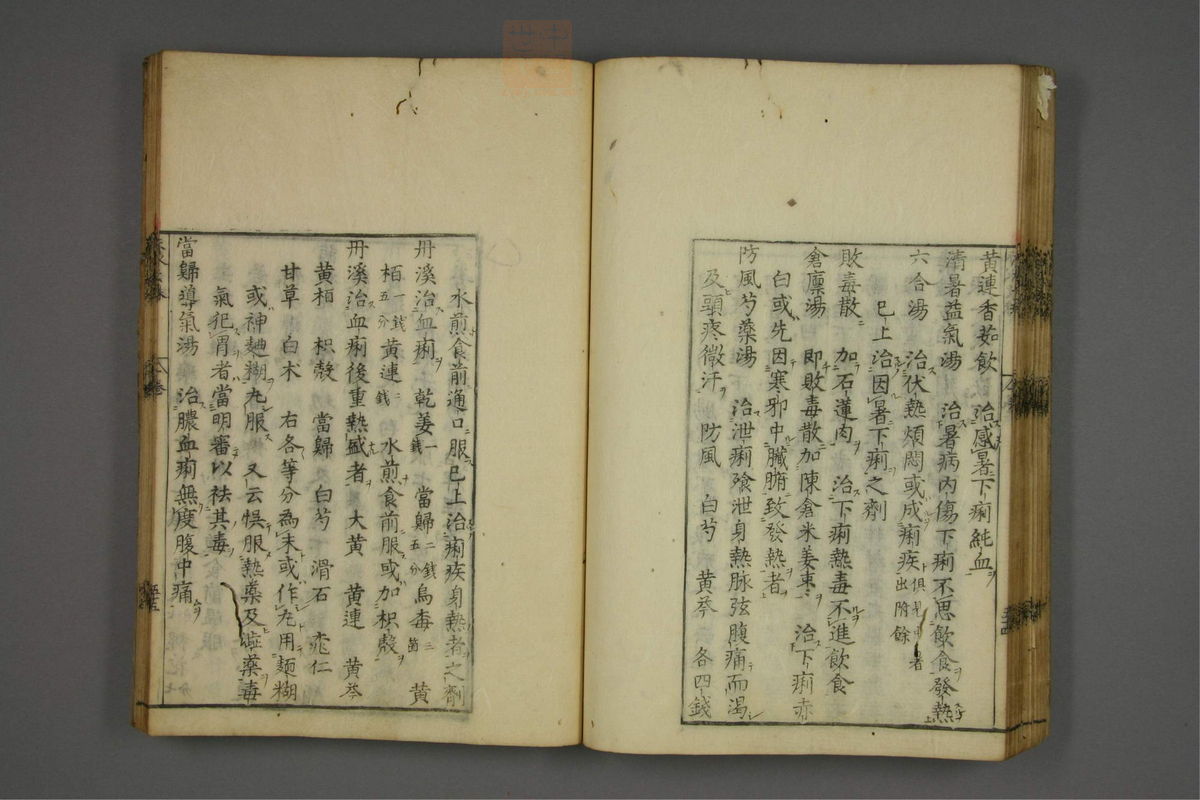 黃連香茹飲　治感暑下痢純血
清暑益氣湯　治暑病內傷下痢不思飲食發熱
六合湯　治伏熱煩悶或成痢疾俱見中暑出附餘
已上治因暑下痢之劑
敗毒散　加石蓮肉　治下痢熱毒不進飲食
倉廩湯　即敗毒散加陳倉米姜棗　治下痢赤
白或先因寒邪中臟腑致發熱者
防風芍藥湯　治泄痢飱泄身熱脉弦腹痛而渴
及頭疼微汗　防風　白芍　黃芩　各四錢
水煎食前通口服已上治痢疾身熱者之劑
丹溪治血痢　乾姜一錢　當歸二錢五分　烏毒三箇　黃
栢一錢五分　黃連二錢　水煎食前服或加枳殼
丹溪治血痢後重熱盛者　大黃　黃連　黃芩
黃栢　枳殼　當歸　白芍　滑石　桃仁
甘草　白朮　右各等分為末或作丸用麺糊
或神麯糊丸服　又云悞服熱藥及澁藥毒
氣犯胃者當明審以祛其毒
當歸導氣湯　治膿血痢無度腹中痛